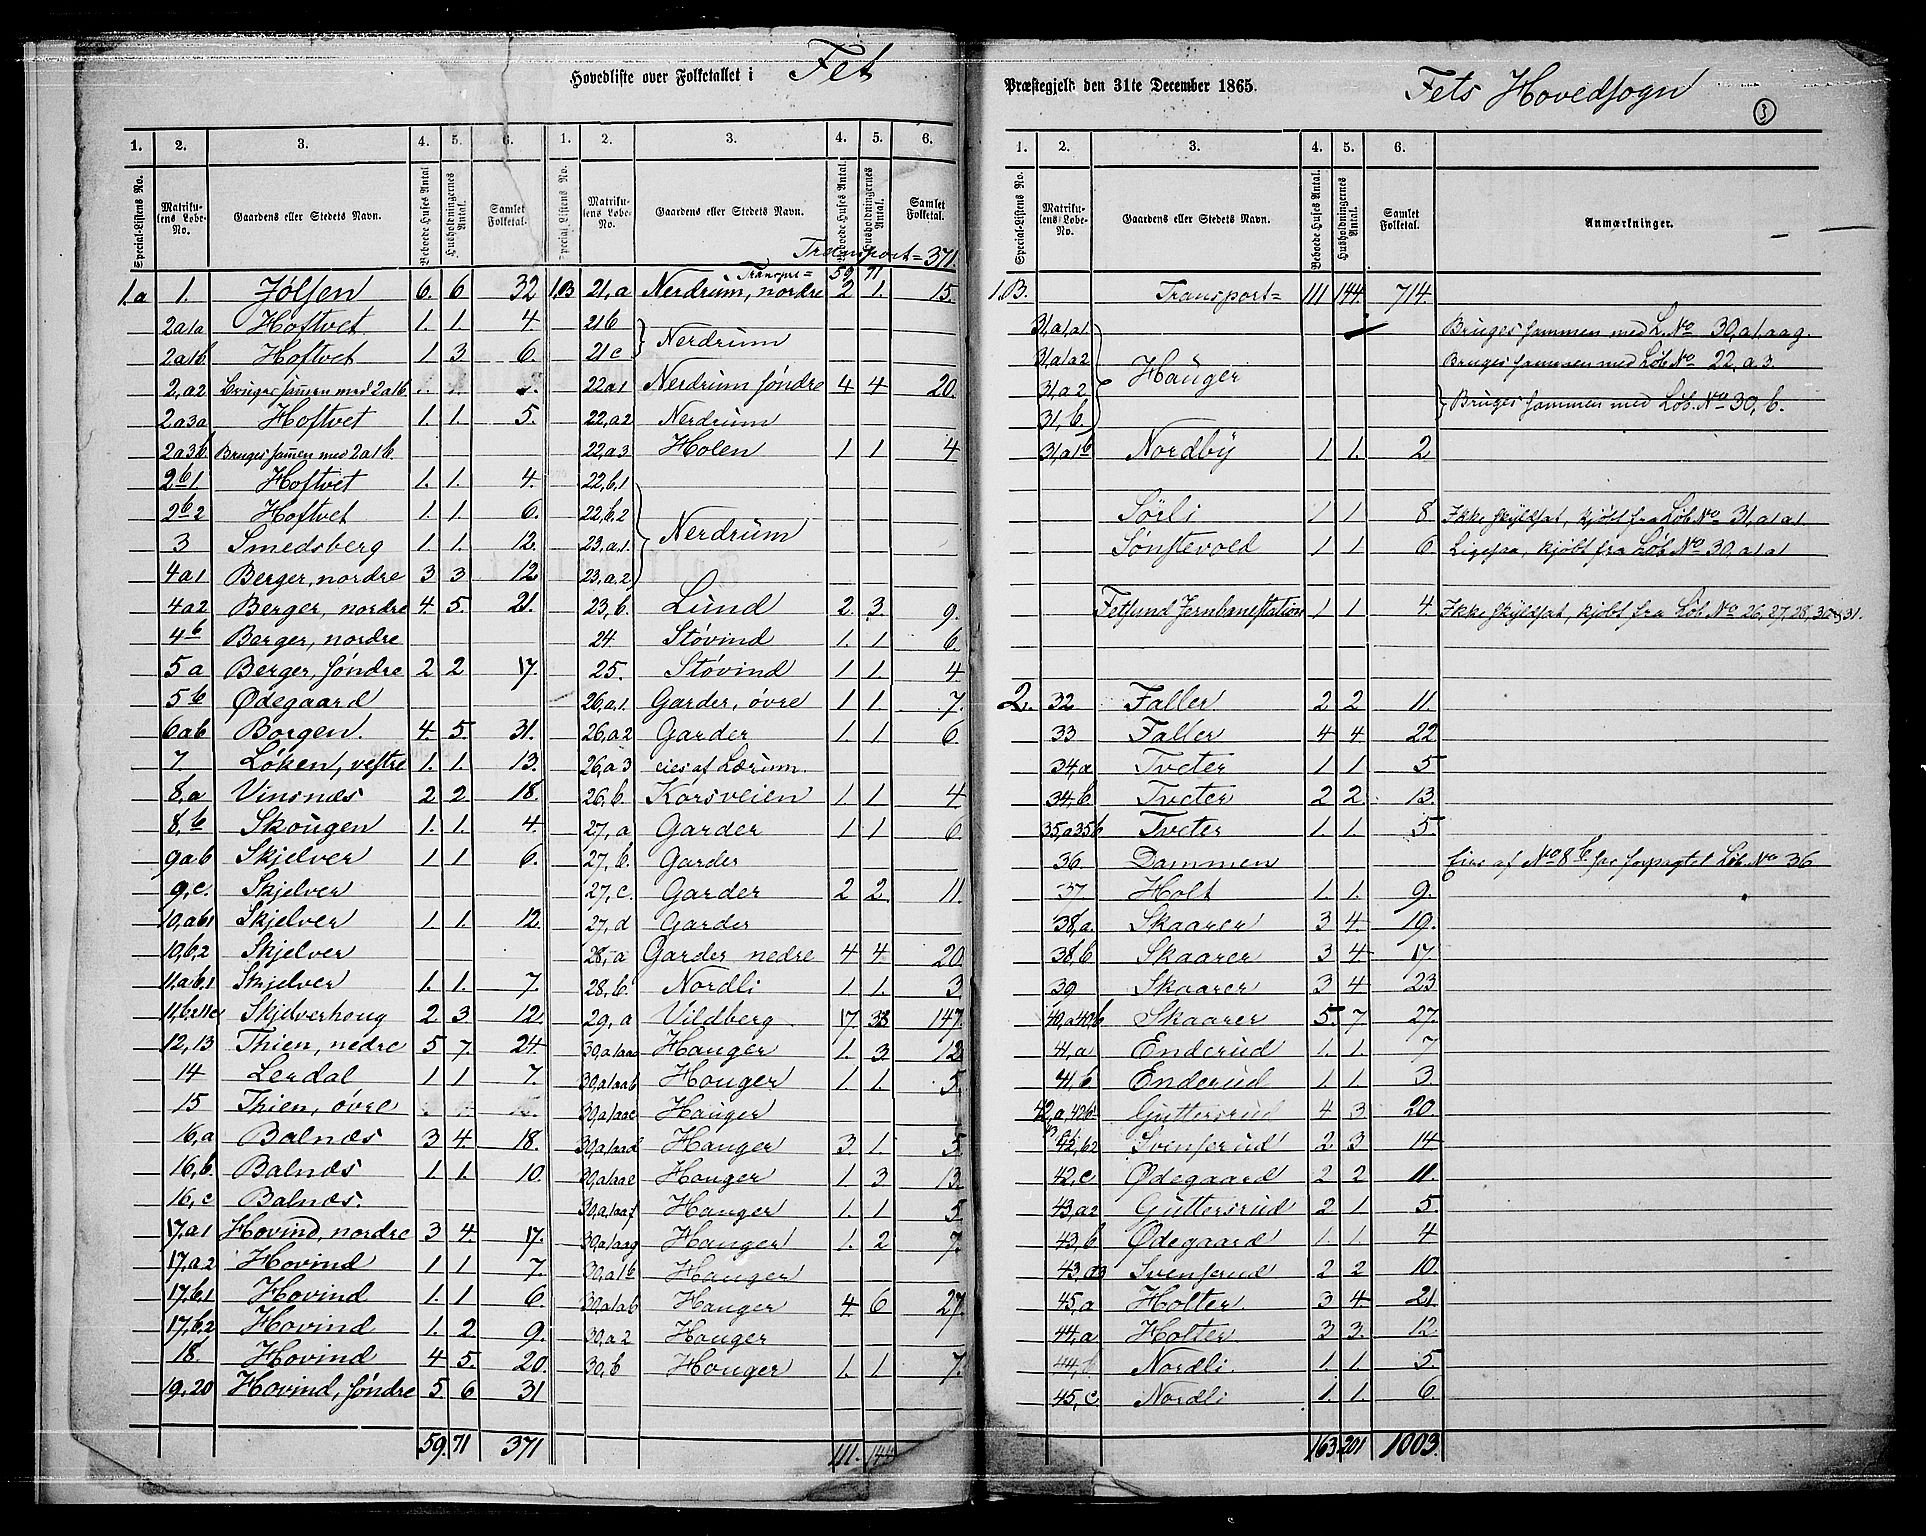 Hovedliste over Folketallet i Fet
1. 2. 3. 4. 5. 6. 1. 2. 3. 4. 5. 6.
Special-Listens No. Matrikulens Løbe-No. Gaardens eller Stedets Navn. Beboede Huses Antal Husholdningernes Antal. Samlet Folketal. Special-Listens No. Matrikulens Løbe-No. Gaardens eller Stedets Navn. Beboede Huses Antal. Husholdningernes Antal. Samlet Folketal.
1.a 1. Jølsen 6. 6 32
2a1a Hoftvet 1. 1. 4
2a1b Hoftvet 1 3 6.
2,a2 bruges sammen med 2a1b
2a3a Hoftvet 1. 1. 5.
2a3b Bruges sam̄en med 2a1b.
2b1. Hoftvet 1. 1. 4.
2b2 Hoftvet 1. 1 6.
3 Smedsberg 1. 1. 12.
4a1 Berger, nordre 3 3 12
4a2 Berger, nordre 4 5. 21.
4b Berger, nordre
5a Berger, søndre 2 2 17.
5b Ødegaard
6ab Borgen. 4 5. 31.
7. Løken, vestre 1. 1. 13.
8,a Vinsnæs 2 2. 18.
8,b Skougen 1. 1. 4.
9a.b Skjelver 1 1 6.
9,c. Skjelver
10,ab1 Skjelver 1 1. 12.
10,b,2 Skjelver
11,a,b,1 Skjelver 1. 1. 7.
11,b,2 11c Skjelverhoug 2 3. 12.
12,13 Thien, nedre 5 7. 24.
14 Lerdal 1 1 7.
15 Thien, øvre
16,a Balnæs 3 4. 18.
16,b. Balnæs 1. 1. 10.
16,c Balnæs.
17,a1 Hovind, nordre 3 4 17.
17,a2 Hovind 1 1 7.
17,b,1 Hovind 1. 1 6.
17,b,2 Hovind 1. 2 9.
18. Hovind 4 5. 20.
19,20 Hovind, søndre 5 6 31
59. 71 371
Transport= 371.
Transpt= 59 71
1.B 21,a Nerdrum, nordre 2 1. 15.
21b
21c } Nerdrum
22a1 Nerdrum søndre 4 4 20.
22,a2 Nerdrum
22,a3 Holen 1 1 4
22,b,1
22,b,2
23,a,1. } Nerdrum
23,a,2
23,b. Lund 2 3. 9.
24 Støvind 1. 1 6.
25. Støvind 1 1 4
26,a,1. Garder, øvre 1 1 7.
26,a2 Garder 1. 1 6
26,a3 eies af Lærum.
26,b. Korsveien 1. 1 4
27,a Garder 1 1 6
27,b. Garder
27,c. Garder 2 2 11.
27,d Garder
28,a Garder nedre 4 4 20.
28,b. Nordli 1. 1. 3
29,a Vildberg 17 38 147.
30,a1aa Hauger 1. 3. 12
30,a1aab Hauger 1. 1 5.
30,a1aac Hauger
30,a1aad Hauger 3. 1. 5
30,a1aae Hauger 1 3 13.
30,a,1aaf Hauger 1. 1 5
30,a1aag Hauger 1. 2 7.
30,a1b Hauger
30,a1ab Hauger 4 6 27.
30,a2 Hauger
30,b Hauger 1. 1 7.
111. 144
Præstegjeld den 31te December 1865. Fets Hovedsogn 3
1. 2. 3. 4. 5. 6.
Special-Listens No. Matrikulens Løbe-No. Gaardens eller Stedets Navn. Beboede Huses Antal. Husholdningernes Antal. Samlet Folketal. Anmærkninger.
1.B. Transport= 111 144. 714.
31,a1,a1 Bruges sammen med L.No 30,a1,aag.
31,a1a2 Bruges sammen med Løb.No 22,a3.
31,a2 } Hauger
31,b. } Bruges sammen med Løb.No 30,b.
31,a1b Nordby 1 1. 2
Sørli 1 1 8 Ikke skyldsat, kjøbt fra Løb.No 31,a1a1
Sønstevold 1 1 6 Ligesaa, kjøbt fra Løb.No 30,a1a1
Fetsund Jernbanestation 1 1 4. Ikke skyldsat, kjøbt fra Løb.No 26,27,28,30 og 31.
2. 32 Faller 2 2 11.
33 Faller 4 4 22
34,a Tveter 1 1. 5
34,b. Tveter 2 2. 13.
35,a35b Tveter 1 1. 5.
36 Dammen Eier af No 8b har forpagtet Løb.No 36
37. Holt 1. 1. 9.
38,a. Skaarer 3 4. 19.
38,b Skaarer 3 4 17.
39 Skaarer 3 4 23
40,a40,b Skaarer 5. 7. 27.
41,a Enderud 1. 1. 7
41,b Enderud 1 1 3.
42,a,42b1 Guttersrud 4 3 20.
42,b2 Svenserud 2. 3 14
42,c Ødegaard 2 2 11.
43,a2 Guttersrud 2 1 5
43,b Ødegaard 1 1 4
43,a3 Svenserud 2 2 10.
45,a Holter 3 4. 21
44,a Holter 3 3. 12.
44,b Nordli. 1. 1. 5.
45,c Nordli 1 1. 6.
163. 201 1003.